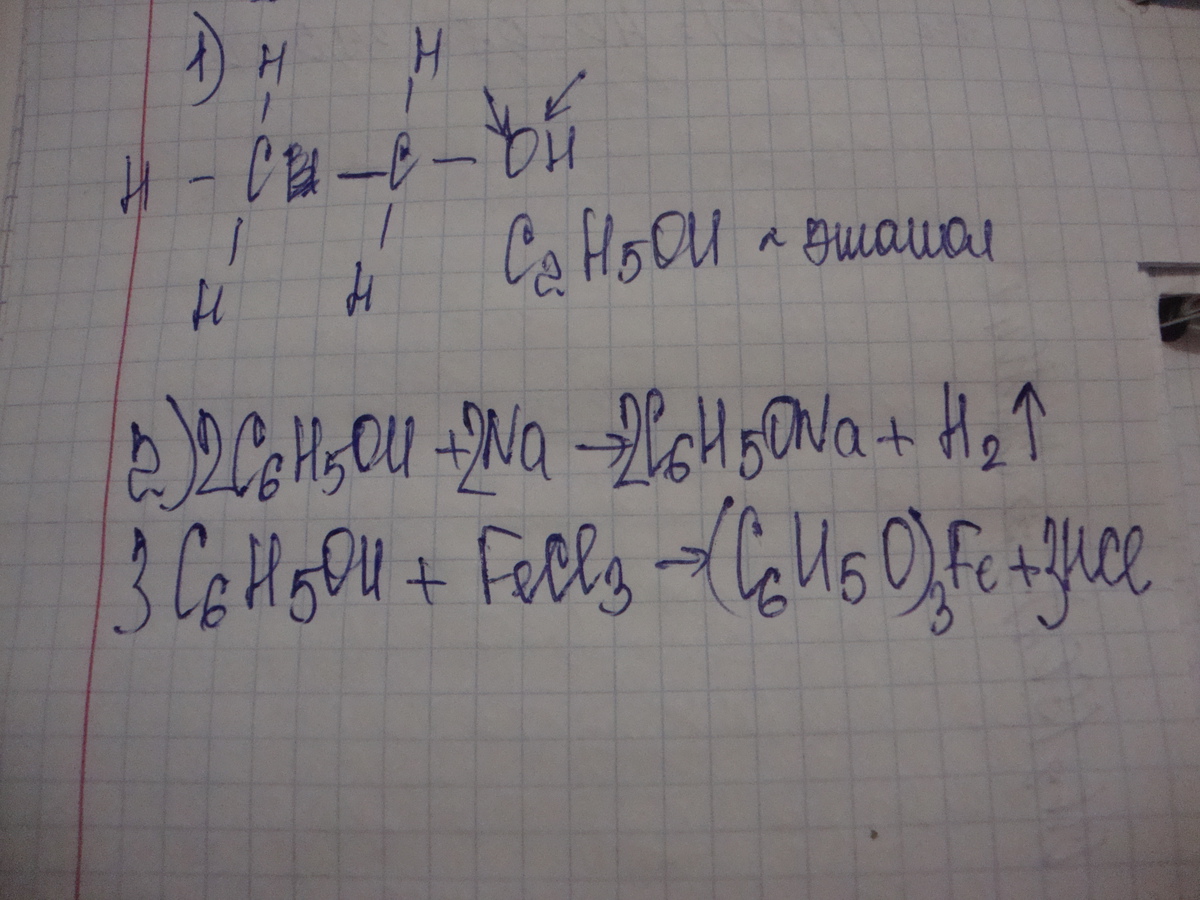 1) H H
H - C - C - OH
H H
C₂H₅OH ~ этанол
2) 2C₆H₅OH + 2Na → 2C₆H₅ONa + H₂↑
3C₆H₅OH + FeCl₃ → (C₆H₅O)₃Fe + 3HCl